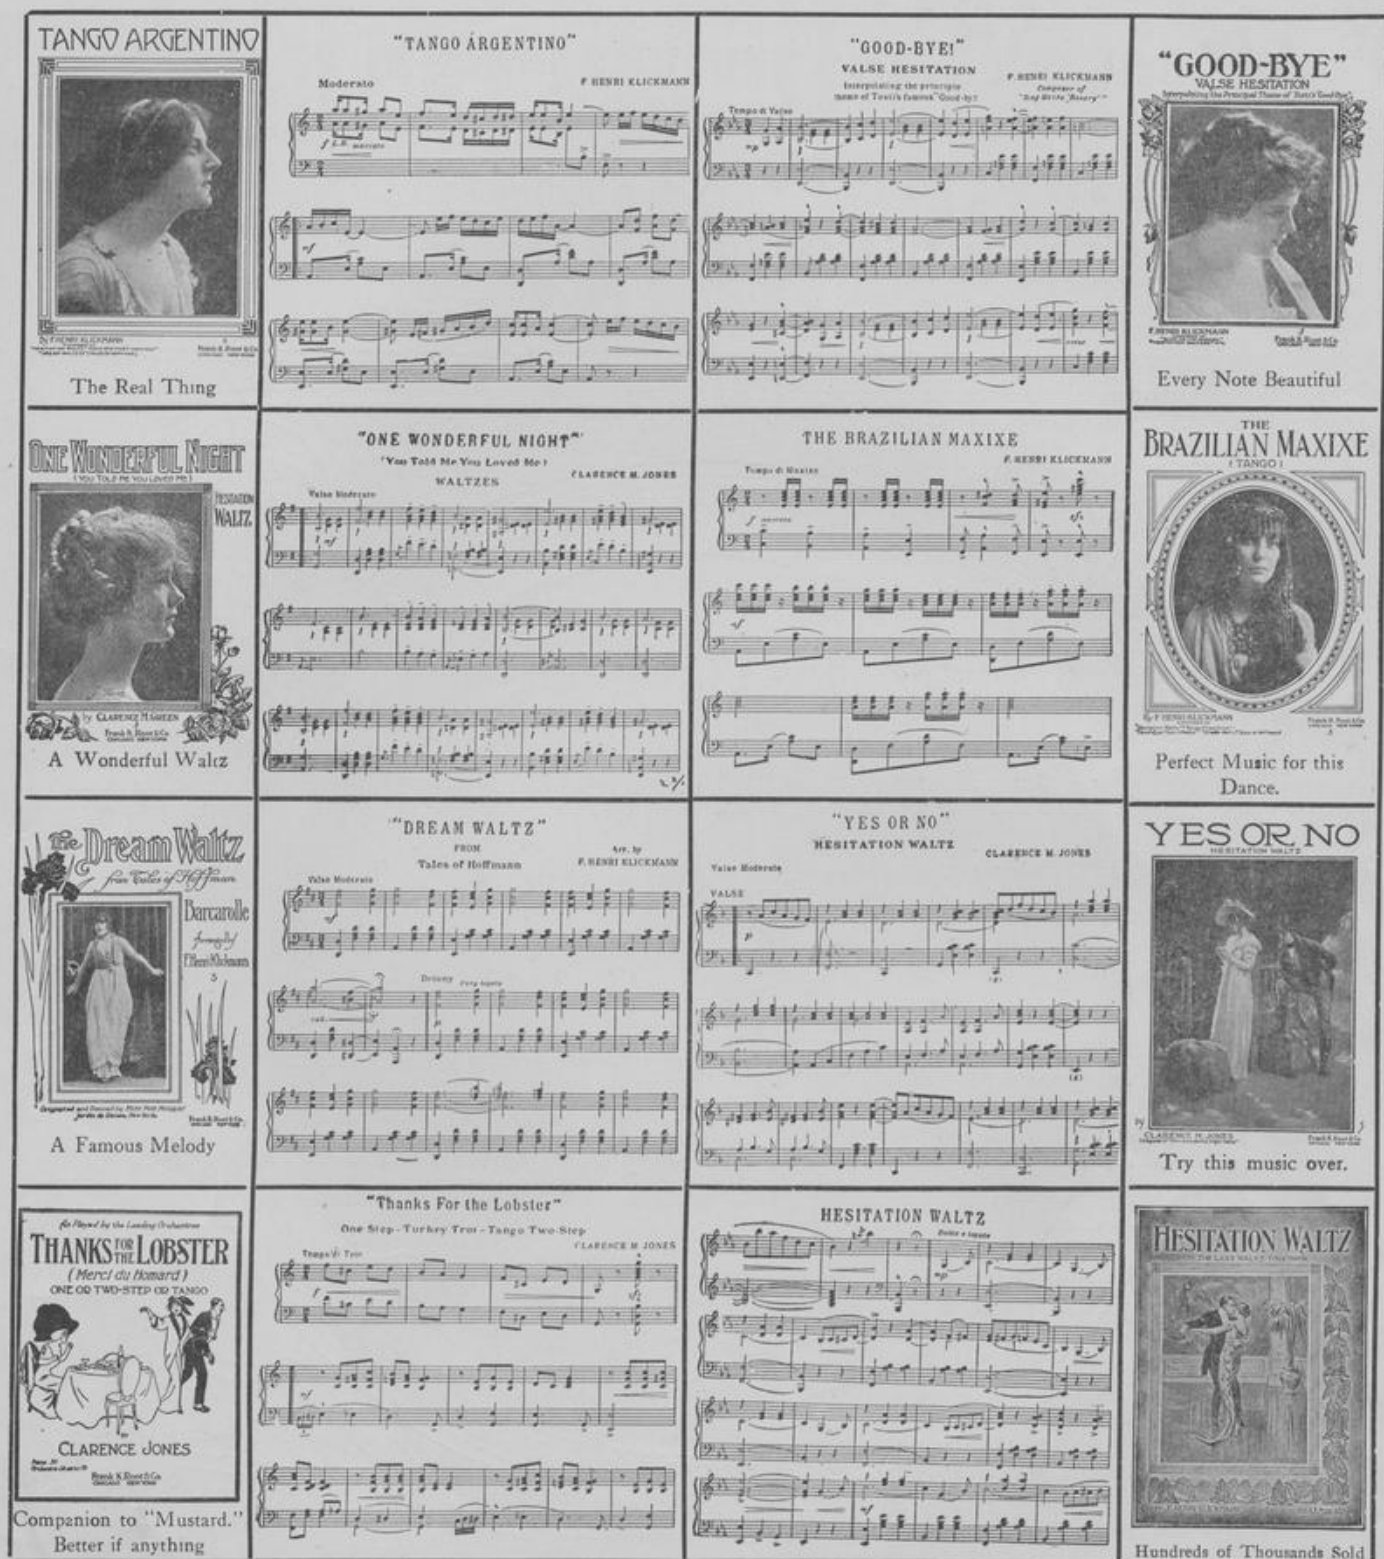 TANGO ARGENTINO
by F. HENRI KLICKMANN
Frank K. Root & Co.
CHICAGO NEW YORK
The Real Thing
"TANGO ARGENTINO"
Moderato
F HENRI KLICKMANN
f L.H. marcato
mf
"GOOD-BYE!"
VALSE HESITATION
Interpolating the principle
theme of Tosti's famous "Good-bye"
F. HENRI KLICKMANN
Composer of
Tempo di Valse
mp
"GOOD-BYE"
VALSE HESITATION
Interpolating the Principal Theme of Tosti's "Good Bye"
F. HENRI KLICKMANN
Frank K. Root & Co.
Every Note Beautiful
ONE WONDERFUL NIGHT
(YOU TOLD ME YOU LOVED ME)
HESITATION
WALTZ
by CLARENCE M. GREEN
Frank K. Root & Co.
CHICAGO NEW YORK
A Wonderful Waltz
"ONE WONDERFUL NIGHT"
(You Told Me You Loved Me)
WALTZES
CLARENCE M. JONES
Valse Moderato
mf
THE BRAZILIAN MAXIXE
F. HENRI KLICKMANN
Tempo di Maxixe
f marcato
sfz
mf
THE
BRAZILIAN MAXIXE
(TANGO)
By F HENRI KLICKMANN
Frank K. Root & Co.
Perfect Music for this
Dance.
The Dream Waltz
from Tales of Hoffman
Barcarolle
F. Henri Klickmann
3
Frank K. Root & Co.
A Famous Melody
"DREAM WALTZ"
FROM
Tales of Hoffmann
Arr. by
F. HENRI KLICKMANN
Valse Moderato
mf
Dreamy
p
"YES OR NO"
HESITATION WALTZ
CLARENCE M. JONES
Valse Moderato
VALSE
p
YES OR NO
HESITATION WALTZ
by
CLARENCE M. JONES
Frank K. Root & Co.
Try this music over.
As Played by the Leading Orchestras
THANKS FOR THE LOBSTER
(Merci du Homard)
ONE OR TWO-STEP OR TANGO
BY
CLARENCE JONES
Frank K. Root & Co.
CHICAGO NEW YORK
Companion to "Mustard."
Better if anything
"Thanks For the Lobster"
One Step - Turkey Trot - Tango Two-Step
CLARENCE M JONES
Tempo di Trot
f
mf
HESITATION WALTZ
mp
mf
HESITATION WALTZ
Hundreds of Thousands Sold